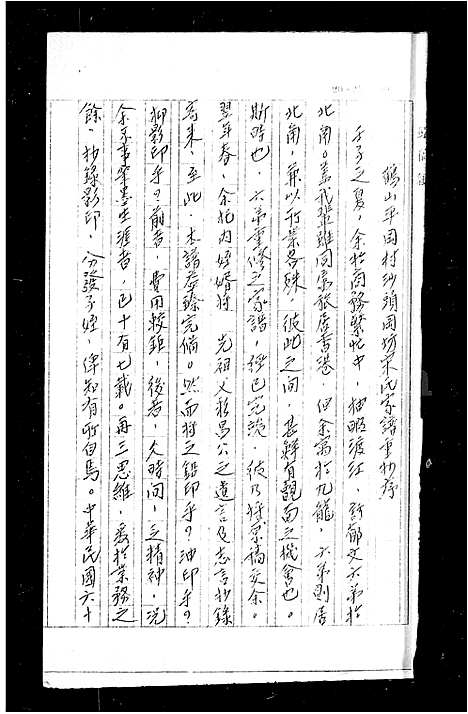 鶴山平岡村沙頭岡坊宋氏家譜重抄序
壬子之夏，余於商務繁忙中，抽暇渡江，訪郁文六弟於
北角。蓋我輩雖同寓旅居香港，但余寓於九龍，六弟則居
北角，兼以行業各殊，彼此之間，甚鮮有觀面之機會也。
斯時也，六弟重修之家譜，經已完竣，彼乃將原稿交余。
翌年春，余托內姪婿將 先祖父 昌公之遺言及志言抄錄
寄來，至此，本譜 臻完備。然而將之鉛印乎？油印乎？
抑影印乎？前者，費用較鉅，後者，欠時間，乏精神，況
余不事筆墨生涯者，已十有七載。再三思維，爰於業務之
餘，抄錄影印，分發子姪，俾知有所自焉。中華民國六十